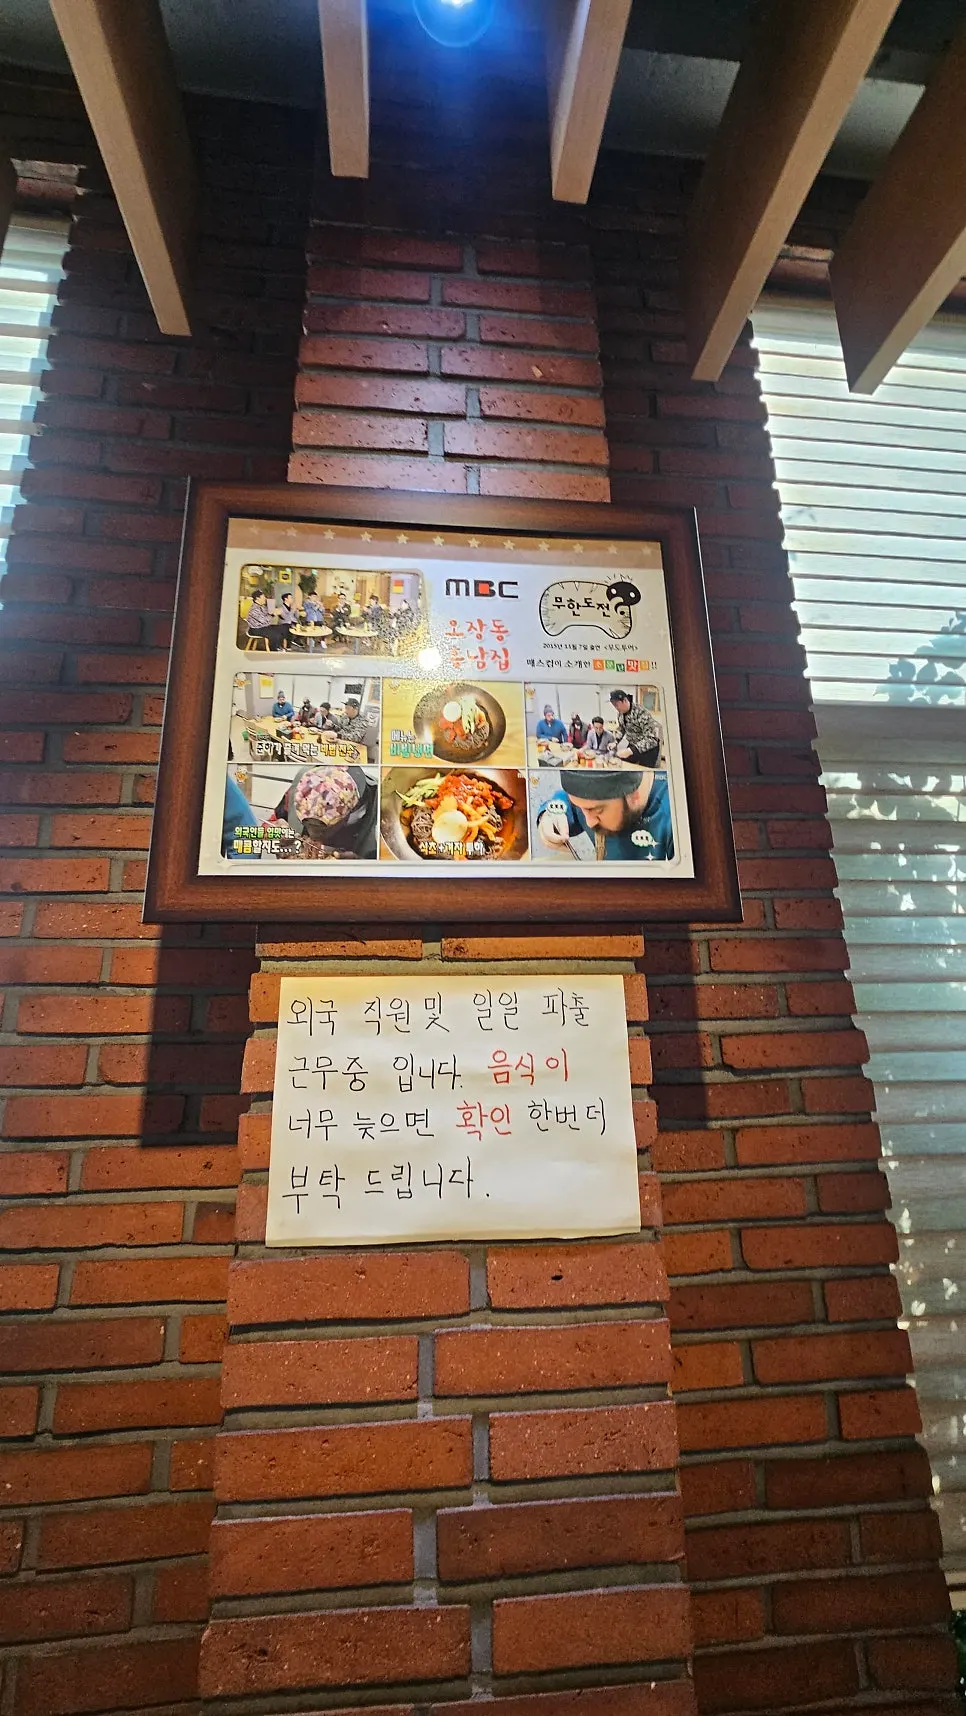 MBC
무한도전
오장동
흥남집
2015년 11월 7일 출연 <무도투어>
매스컴이 소개한 소문난 맛집!!
메뉴는
비빔냉면
외국인들 입맛에는
매콤할지도...?
식초+겨자 투하
MBC
외국 직원 및 일일 파출
근무중 입니다. 음식이
너무 늦으면 확인 한번 더
부탁 드립니다.